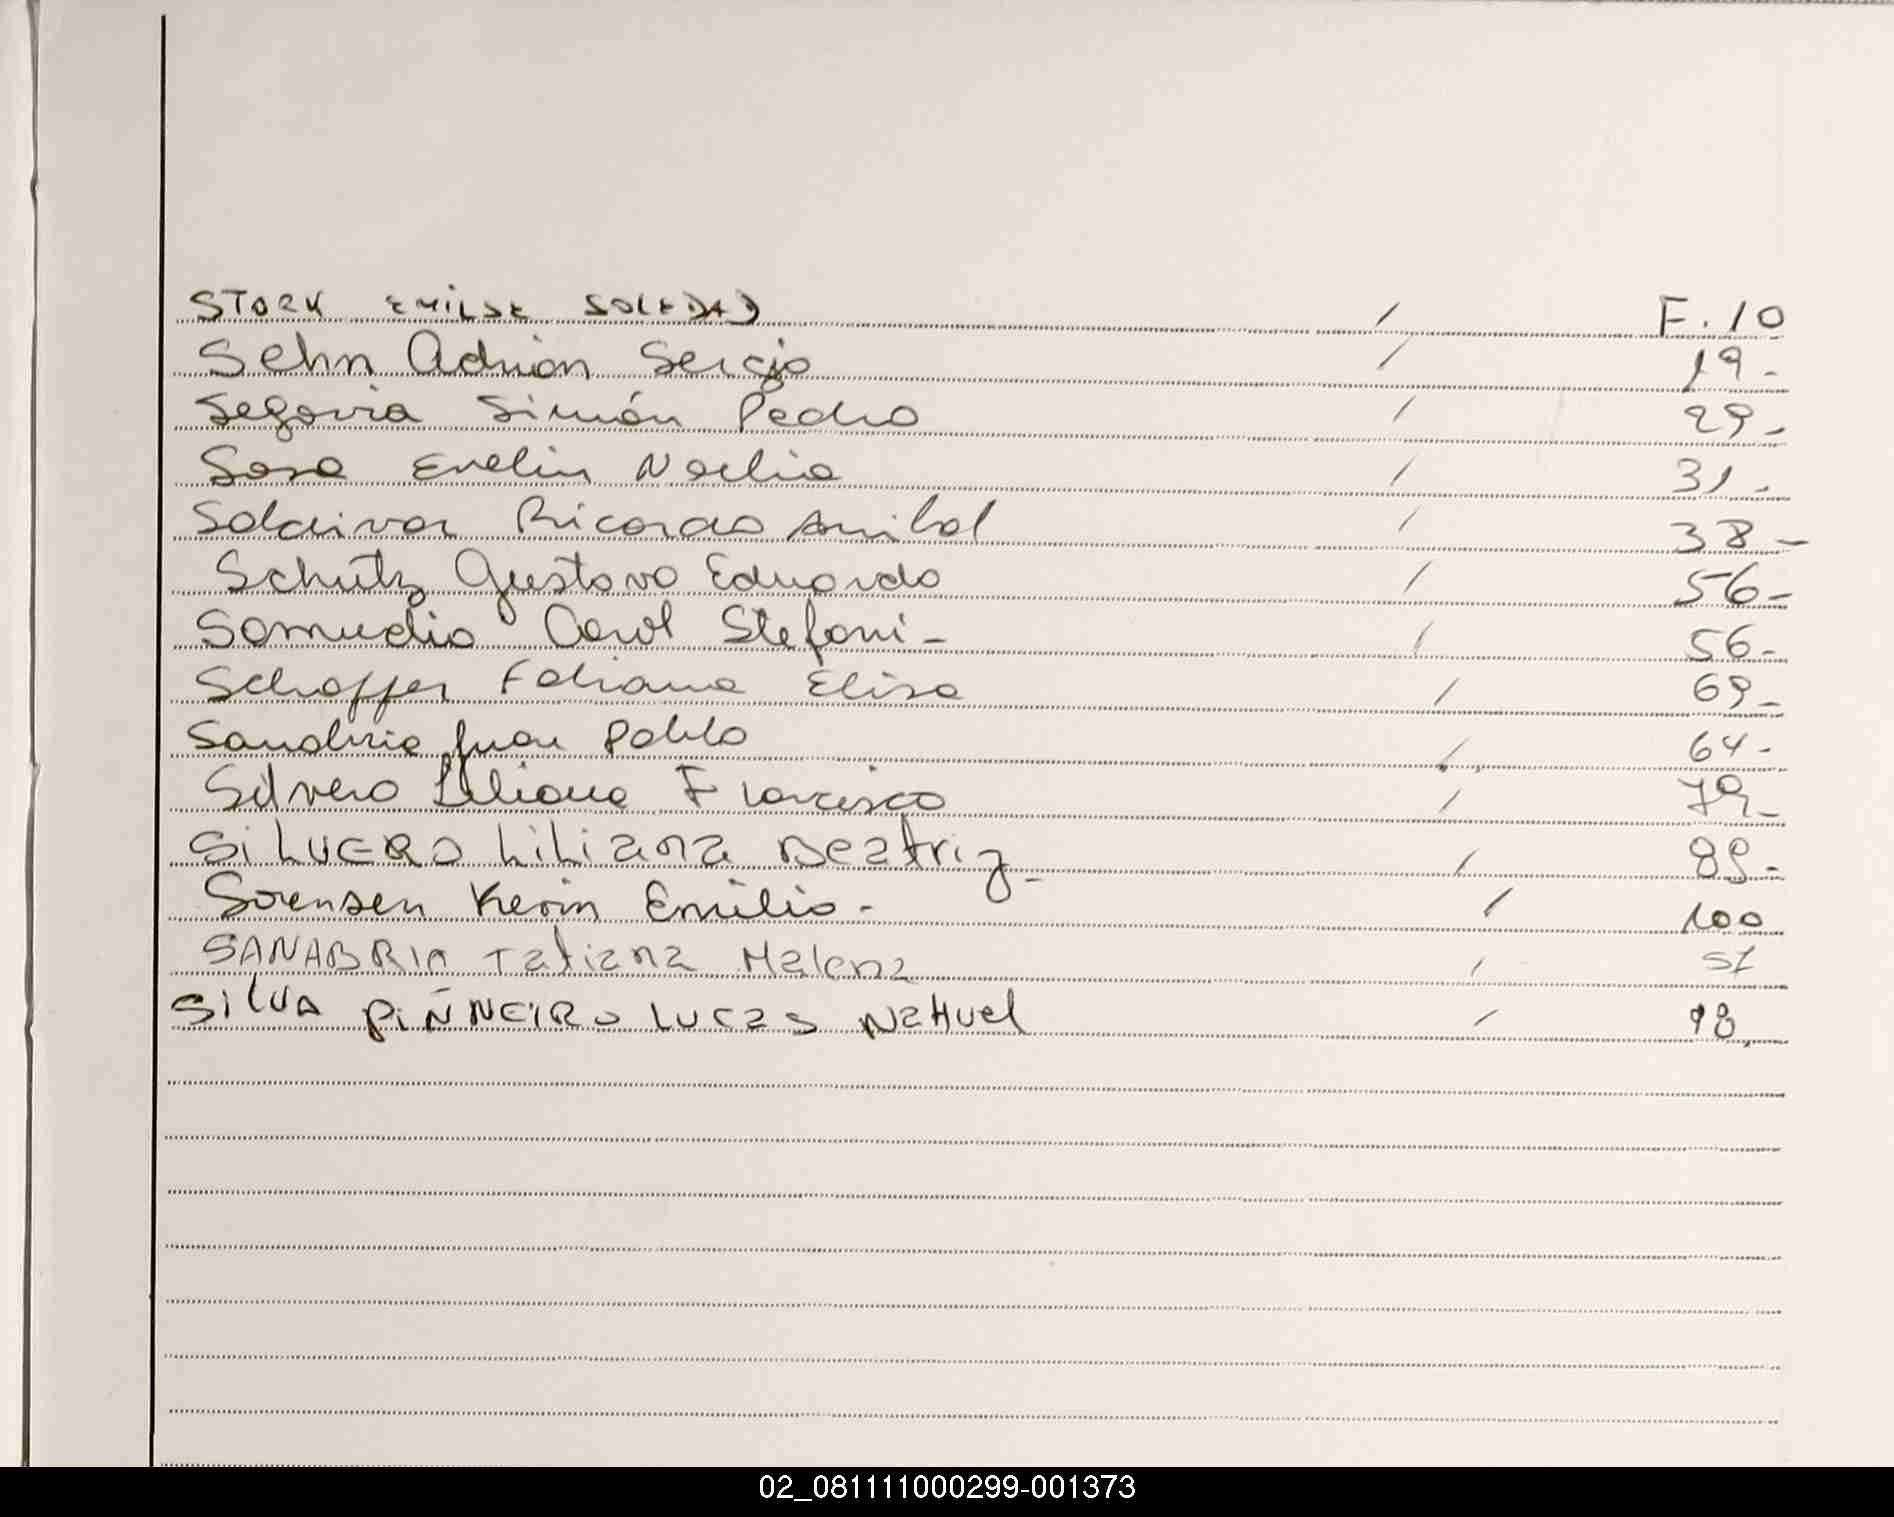 STORK EMILSE SOLEDAD / F. 10
Sehn Adrian Sergio / 19-
Segovia Simón Pedro / 29-
Sosa Evelin Noelia / 31-
Saldivar Ricardo Anibal / 38-
Schutz Gustavo Eduardo / 56-
Samudio Carol Stefani- / 56-
Schaffer Fabiana Elisa / 69-
Sanabria Juan Pablo / 64-
Silvero Liliana Francisco / 79-
SiLVERO LiLiana Beatriz- / 89-
Sorensen Kevin Emilio- / 100
SANABRIA Tatiana Malena / 51
SiLVA PiÑNEIRO LUCAS NaHuel / 98
02_081111000299-001373